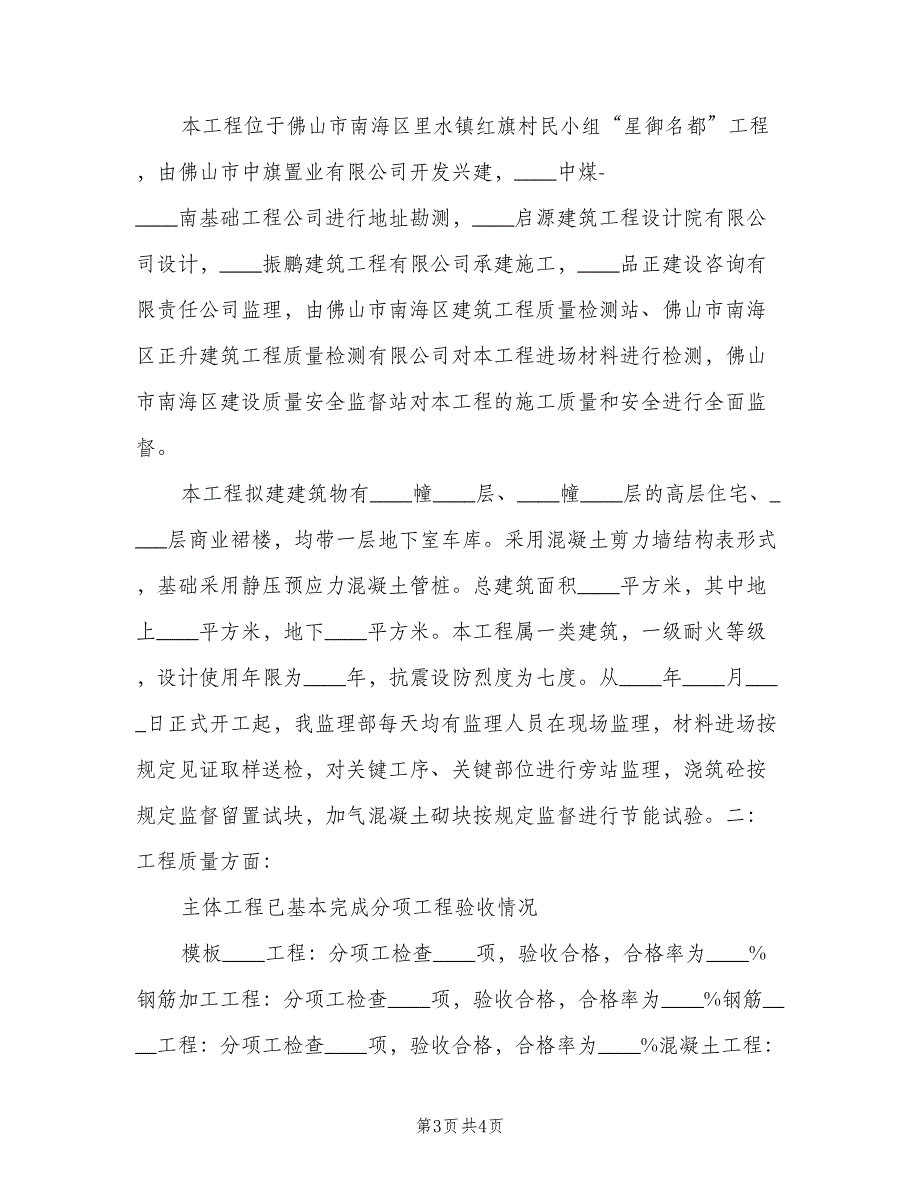 本工程位于佛山市南海区里水镇红旗村民小组“星御名都”工程
，由佛山市中旗置业有限公司开发兴建，____中煤-
____南基础工程公司进行地址勘测，____启源建筑工程设计院有限公
司设计，____振鹏建筑工程有限公司承建施工，____品正建设咨询有
限责任公司监理，由佛山市南海区建筑工程质量检测站、佛山市南海
区正升建筑工程质量检测有限公司对本工程进场材料进行检测，佛山
市南海区建设质量安全监督站对本工程的施工质量和安全进行全面监
督。
本工程拟建建筑物有____幢____层、____幢____层的高层住宅、_
___层商业裙楼，均带一层地下室车库。采用混凝土剪力墙结构表形式
，基础采用静压预应力混凝土管桩。总建筑面积____平方米，其中地
上____平方米，地下____平方米。本工程属一类建筑，一级耐火等级
，设计使用年限为____年，抗震设防烈度为七度。从____年____月___
_日正式开工起，我监理部每天均有监理人员在现场监理，材料进场按
规定见证取样送检，对关键工序、关键部位进行旁站监理，浇筑砼按
规定监督留置试块，加气混凝土砌块按规定监督进行节能试验。二：
工程质量方面：
主体工程已基本完成分项工程验收情况
模板____工程：分项工检查____项，验收合格，合格率为____%
钢筋加工工程：分项工检查____项，验收合格，合格率为____%钢筋__
__工程：分项工检查____项，验收合格，合格率为____%混凝土工程：
第3页共4页